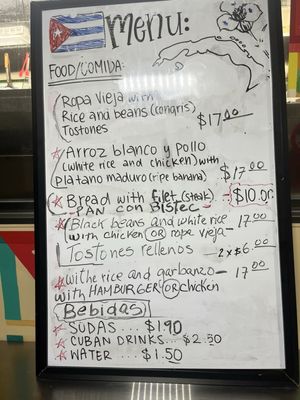 MENU:
FOOD/COMIDA:
Ropa Vieja with
Rice and beans (congris)
Tostones
$17.00
Arroz blanco y pollo
(white rice and chicken) with
platano maduro (ripe banana)
$17.00
Bread with filet (steak)
$10.00
-PAN CON BISTEC-
Black beans and white rice - 17.00
with chicken (OR) rope vieja-
Tostones rellenos
2x$6.00
withe rice and garbanzo- 17.00
with HAMBURGER (OR) chicken
Bebidas
SUDAS ... $1.90
CUBAN DRINKS... $2.50
WATER ... $1.50